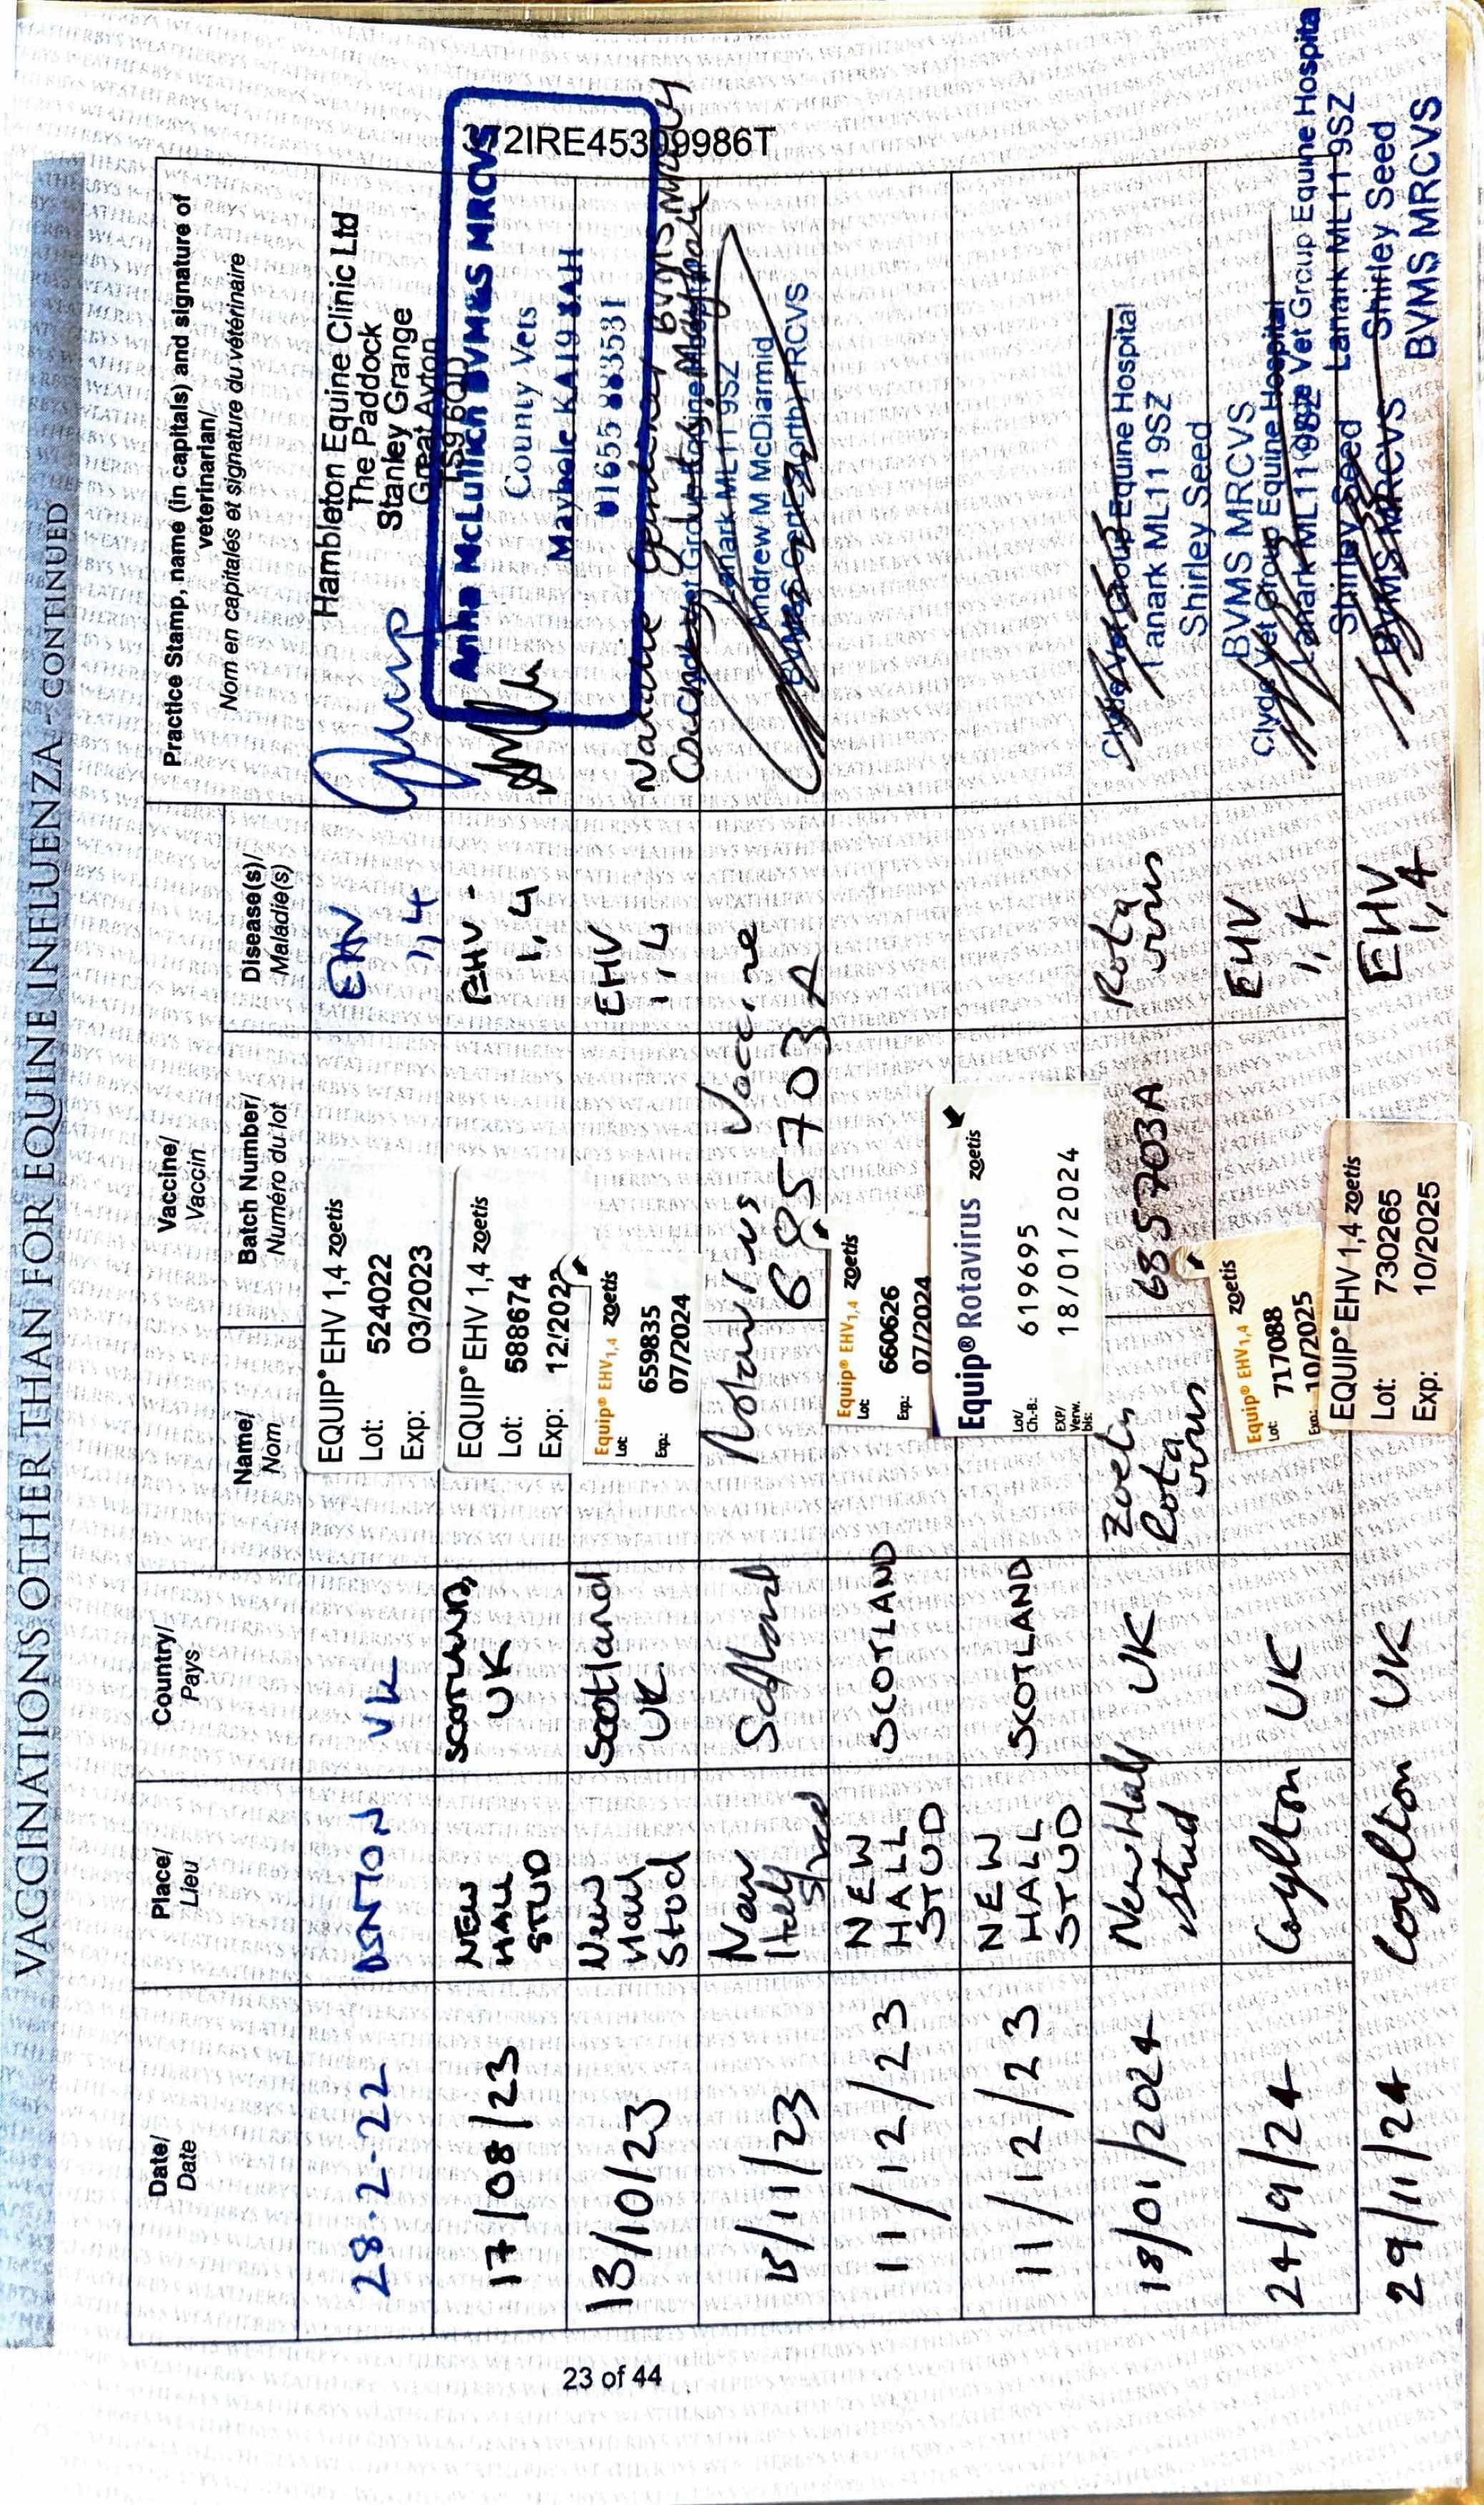 VACCINATIONS OTHER THAN FOR EQUINE INFLUENZA - CONTINUED
372IRE45399986T
Date/
Date
Place/
Lieu
Country/
Pays
Vaccine/
Vaccin
Name/
Nom
Batch Number/
Numéro du lot
Disease(s)/
Maladie(s)
Practice Stamp, name (in capitals) and signature of
veterinarian/
Nom en capitales et signature du vétérinaire
28-2-22
DENTON
UK
EQUIP® EHV 1,4 zoetis
Lot: 524022
Exp: 03/2023
EHV
1,4
Hambleton Equine Clinic Ltd
The Paddock
Stanley Grange
Great Ayton
TS9 6QD
17/08/23
NEW
HALL
STUD
SCOTLAND,
UK
EQUIP® EHV 1,4 zoetis
Lot: 588674
Exp: 12/2023
EHV-
1,4
McLullich BVM&S MRCVS
County Vets
Maybole KA19 8AH
01655 883531
13/10/23
New
Hall
Stud
Scotland
UK
Equip® EHV1,4 zoetis
Lot: 659835
Exp.: 07/2024
EHV
1,4
Natalie BVMS MRCVS
County Vets, Maybole
13/11/23
New
Hall Stud
Scotland
Rotavirus Vaccine
685703A
Clyde Vet Group Equine Hospital
Lanark ML11 9SZ
Andrew M McDiarmid
BVMS CertEP FRCVS
11/12/23
NEW
HALL
STUD
SCOTLAND
Equip® EHV1,4 zoetis
Lot: 660626
Exp.: 07/2024
11/12/23
NEW
HALL
STUD
SCOTLAND
Equip® Rotavirus zoetis
Lot/
Ch.-B.: 619695
EXP/
Verw.
bis: 18/01/2024
18/01/2024
New Hall
Stud
UK
Zoetis
Rota
virus
685703A
Rota
virus
Clyde Vet Group Equine Hospital
Lanark ML11 9SZ
Shirley Seed
BVMS MRCVS
24/9/24
Coylton
UK
Equip® EHV1,4 zoetis
Lot: 717088
Exp.: 10/2025
EHV
1,4
Clyde Vet Group Equine Hospital
Lanark ML11 9SZ
Shirley Seed
BVMS MRCVS
29/11/24
Coylton
UK
EQUIP® EHV 1,4 zoetis
Lot: 730265
Exp: 10/2025
EHV
1,4
Clyde Vet Group Equine Hospita
Lanark ML11 9SZ
Shirley Seed
BVMS MRCVS
23 of 44